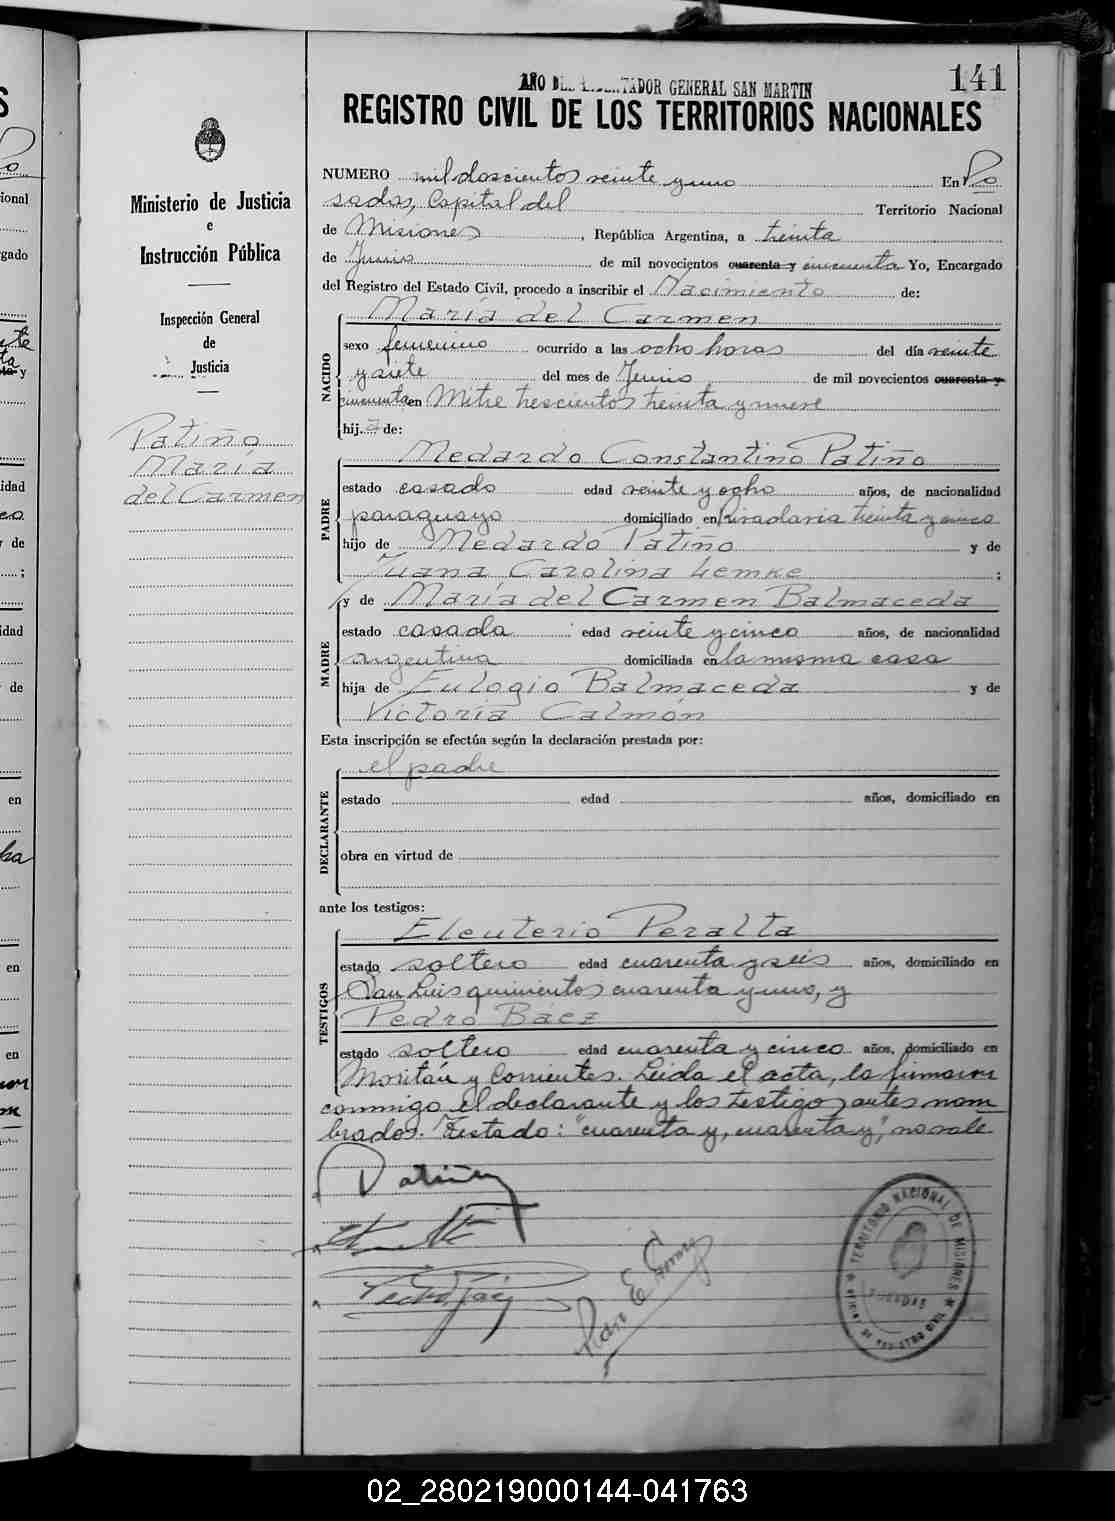 141
AÑO DEL LIBERTADOR GENERAL SAN MARTIN
REGISTRO CIVIL DE LOS TERRITORIOS NACIONALES
Ministerio de Justicia
e
Instrucción Pública
Inspección General
de
Justicia
Patiño
María
del Carmen
NUMERO mil doscientos veinte y uno En Po
sadas, Capital del Territorio Nacional
de Misiones, República Argentina, a treinta
de Junio de mil novecientos cuarenta y cincuenta Yo, Encargado
del Registro del Estado Civil, procedo a inscribir el Nacimiento de:
NACIDO
María del Carmen
sexo femenino ocurrido a las ocho horas del día veinte
y siete del mes de Junio de mil novecientos cuarenta y
cincuenta en Mitre trescientos treinta y nueve
hija de:
PADRE
Medardo Constantino Patiño
estado casado edad veinte y ocho años, de nacionalidad
paraguaya domiciliado en Rivadavia treinta y cinco
hijo de Medardo Patiño y de
Juana Carolina Lemke ;
MADRE
y de María del Carmen Balmaceda
estado casada edad veinte y cinco años, de nacionalidad
argentina domiciliada en la misma casa
hija de Eulogio Balmaceda y de
Victoria Calmón
Esta inscripción se efectúa según la declaración prestada por:
DECLARANTE
el padre
estado edad años, domiciliado en
obra en virtud de
ante los testigos:
TESTIGOS
Eleuterio Peralta
estado soltero edad cuarenta y seis años, domiciliado en
San Luis quinientos cuarenta y uno, y
Pedro Báez
estado soltero edad cuarenta y cinco años, domiciliado en
Moritán y Corrientes. Leida el acta, la firmaron
conmigo el declarante y los testigos antes nom
brados. Testado: "cuarenta y, cuarenta y", no vale
Patiño
Pedro Báez
TERRITORIO NACIONAL DE MISIONES
POSADAS
OFICINA DE REGISTRO CIVIL
02_280219000144-041763